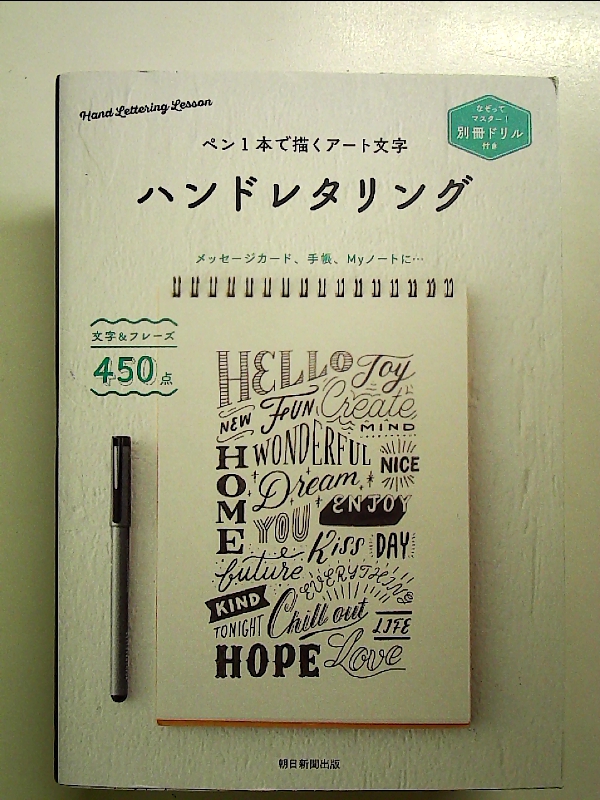 Hand Lettering Lesson
なぞって
マスター！
別冊ドリル
付き
ペン1本で描くアート文字
ハンドレタリング
メッセージカード、手帳、Myノートに…
文字&フレーズ
450点
HELLO Joy
NEW FUN Create
MIND
HOME
WONDERFUL
NICE
Dream
ENJOY
YOU
Kiss DAY
future EVERYTHING
KIND
TONIGHT Chill out LIFE
HOPE Love
朝日新聞出版